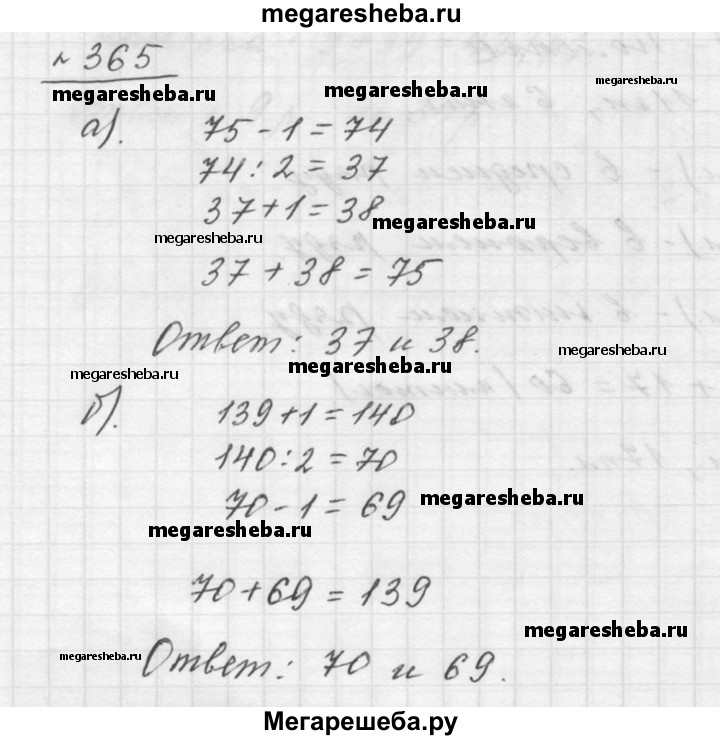 megaresheba.ru
№ 365
megaresheba.ru megaresheba.ru megaresheba.ru
а). 75 - 1 = 74
74 : 2 = 37
37 + 1 = 38
megaresheba.ru megaresheba.ru
37 + 38 = 75
Ответ: 37 и 38.
megaresheba.ru megaresheba.ru megaresheba.ru
б). 139 + 1 = 140
140 : 2 = 70
70 - 1 = 69
megaresheba.ru
megaresheba.ru
70 + 69 = 139
megaresheba.ru
megaresheba.ru
Ответ: 70 и 69.
Мегарешеба.ру